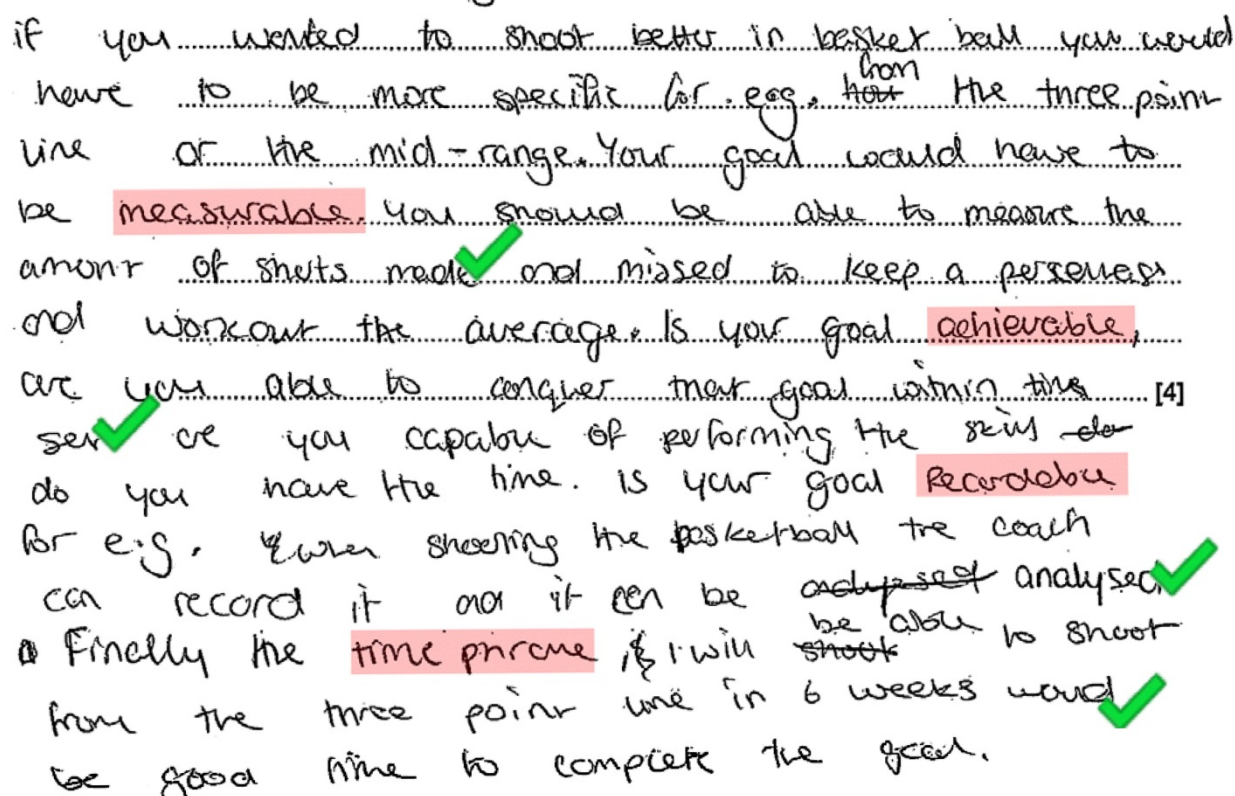 if you wanted to shoot better in basket ball you would
have to be more specific for. eg. how from the three point
line or the mid-range. Your goal would have to
be measurable. You should be able to measure the
amont of shots made and missed to keep a
and workout the average. Is your goal achievable,
are you able to conquer that goal within this [4]
set are you capable of performing the skills do
do you have the time. is your goal Recordable
for e.g. when shooting the basketball the coach
can record it and it can be analysed analysed
Finally the time phrame is I will shoot be able to shoot
from the three point line in 6 weeks would
be good time to complete the goal.